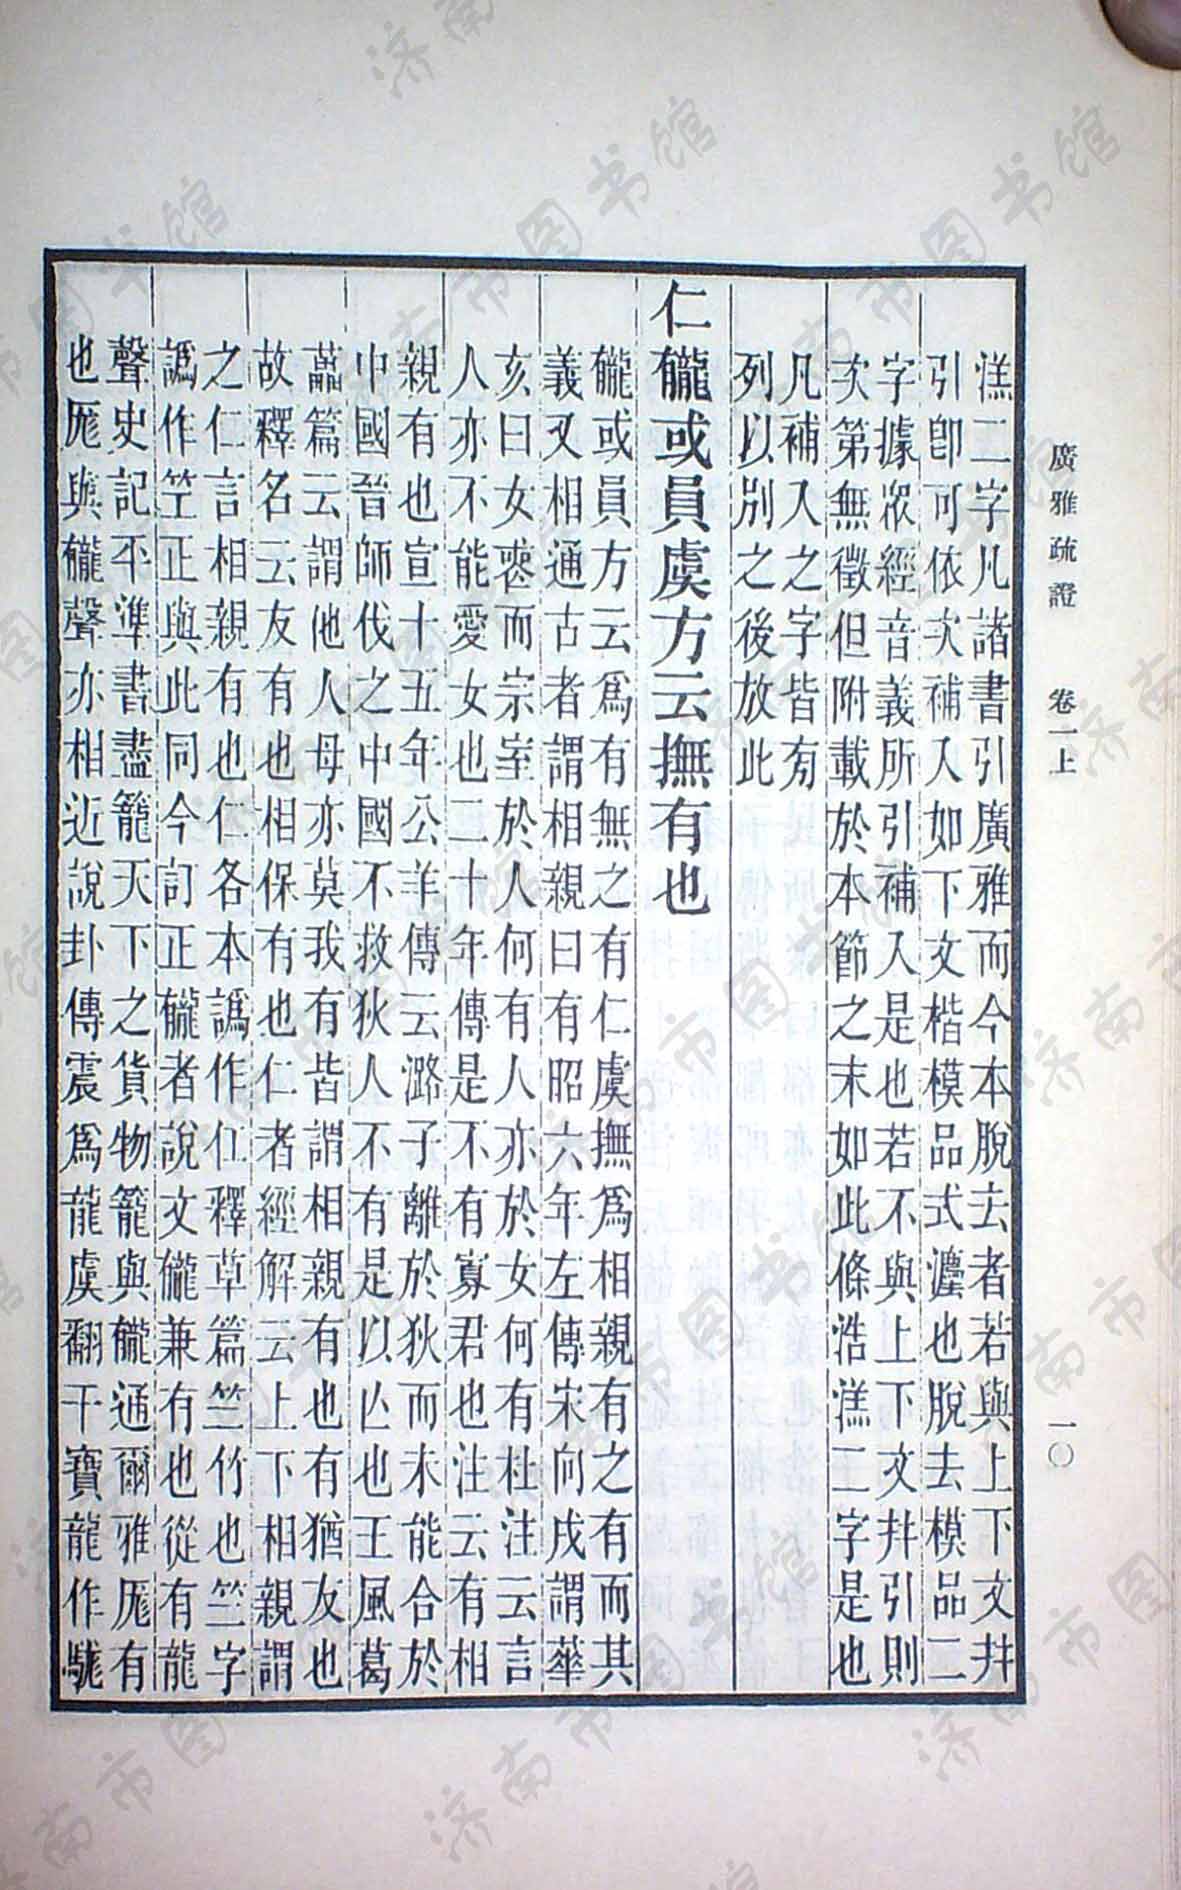 廣雅疏證 卷一上 一〇
溔二字凡諸書引廣雅而今本脫去者若與上下文幷
引卽可依次補入如下文楷模品式灋也脫去模品二
字據眾經音義所引補入是也若不與上下文幷引則
次第無徵但附載於本節之末如此條浩溔二字是也
凡補入之字皆㫄
列以別之後放此
仁龓或員虞方云撫有也
龓或員方云爲有無之有仁虞撫爲相親有之有而其
義又相通古者謂相親曰有昭六年左傳宋向戌謂華
亥曰女喪而宗室於人何有人亦於女何有杜注云言
人亦不能愛女也二十年傳是不有寡君也注云有相
親有也宣十五年公羊傳云潞子離於狄而未能合於
中國晉師伐之中國不救狄人不有是以亾也王風葛
藟篇云謂他人母亦莫我有皆謂相親有也有猶友也
故釋名云友有也相保有也仁者經解云上下相親謂
之仁言相親有也仁各本譌作仜釋草篇竺竹也竺字
譌作笁正與此同今訂正龓者說文龓兼有也從有龍
聲史記平準書盡籠天下之貨物籠與龓通爾雅厖有
也厖與龓聲亦相近說卦傳震爲龍虞翻干寶龍作駹